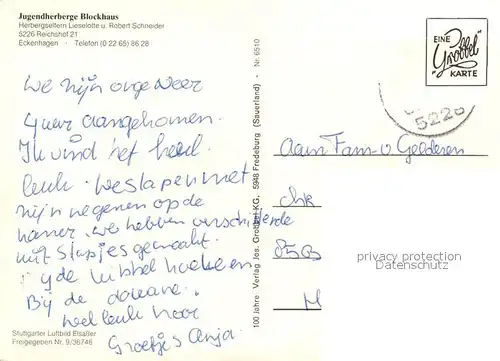 Jugendherberge Blockhaus
Herbergseltern Lieselotte u. Robert Schneider
5226 Reichshof 21
Eckenhagen · Telefon (0 22 65) 86 28
We zijn ongeveer
4 uur aangekomen.
Ik vind het heel
leuk. We slapen met
zijn negenen op de
kamer. We hebben verschillende
uitstapjes gemaakt.
de
Bij de douane.
Heel leuk hoor
Groetjes Anja.
Stuttgarter Luftbild Elsäßer
Freigegeben Nr. 9/36746
100 Jahre Verlag Jos. Grobbel KG, 5948 Fredeburg (Sauerland) - Nr. 6510
EINE
"Grobbel"
KARTE
5226
Aan Fam. v Gelderen
privacy protection
Datenschutz